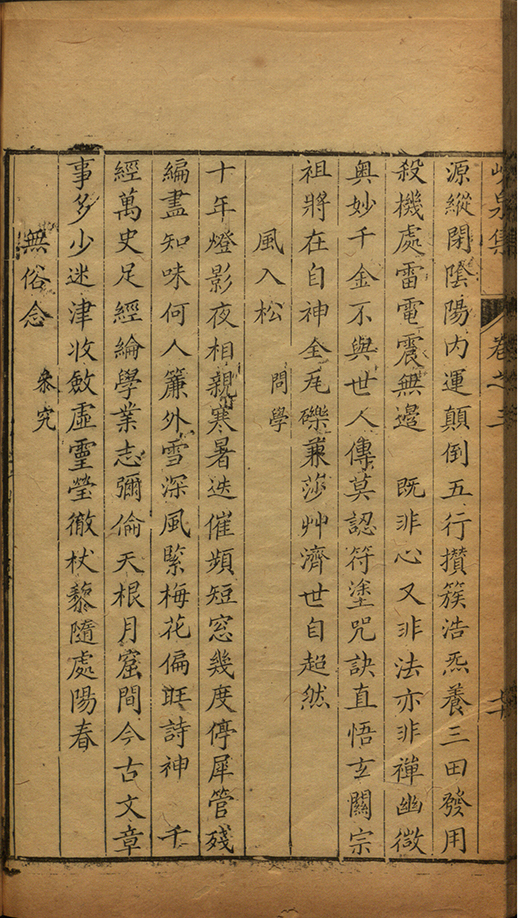 峴泉集 卷之
源縱閉陰陽內運顛倒五行攢簇浩炁養三田發用
殺機處雷電震無邊 既非心又非法亦非禪幽微
奥妙千金不與世人傳莫認符塗咒訣直悟玄關宗
祖將在自神全瓦礫兼莎艸濟世自超然
風入松 問學
十年燈影夜相親寒暑迭催頻短窓幾度停犀管殘
編盡知味何人簾外雪深風緊梅花偏瓩詩神 千
經萬史足經綸學業志彌倫天根月窟間今古文章
事多少迷津收斂虛靈瑩徹杖藜隨處陽春
無俗念 叅究